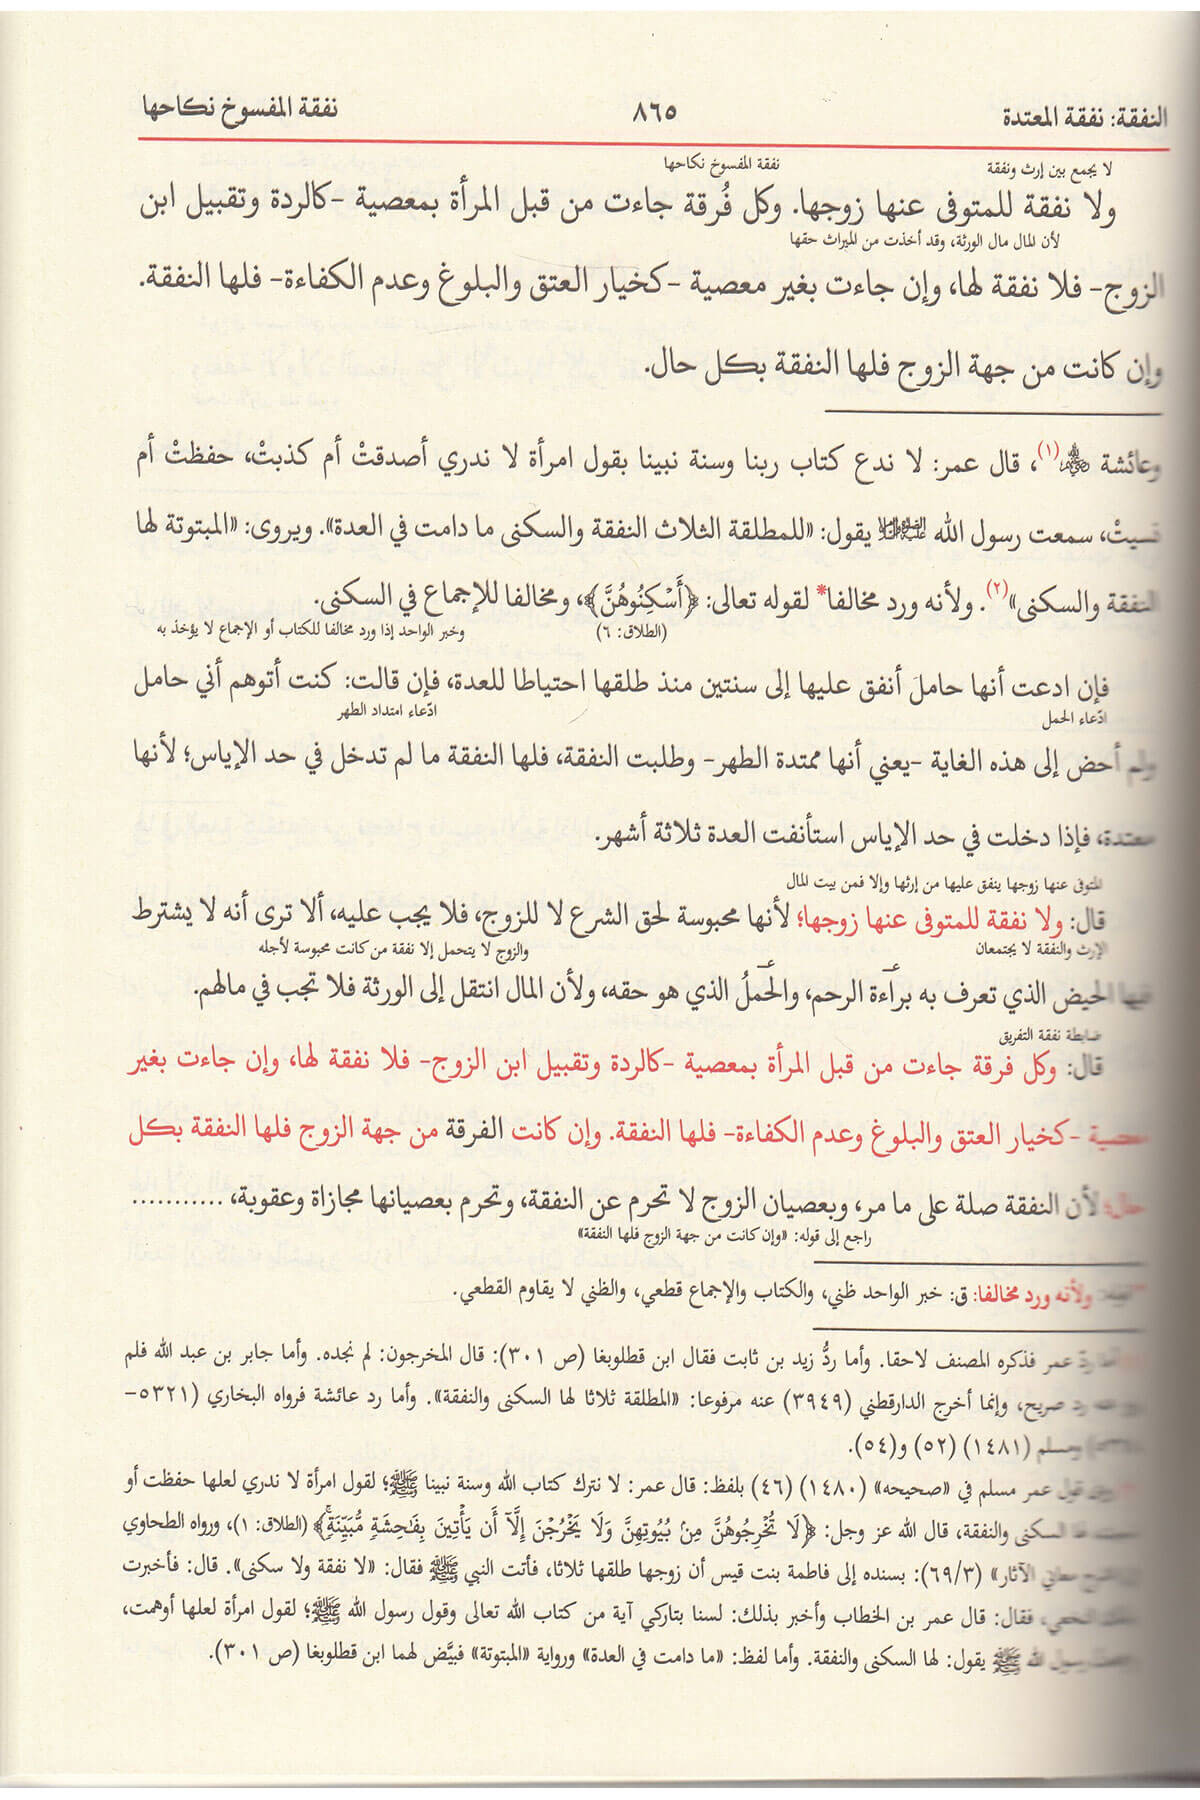 النفقة: نفقة المعتدة ٨٦٥ نفقة المفسوخ نكاحها
لا يجمع بين إرث ونفقة نفقة المفسوخ نكاحها
ولا نفقة للمتوفى عنها زوجها. وكل فُرقة جاءت من قبل المرأة بمعصية -كالردة وتقبيل ابن
لأن المال مال الورثة، وقد أخذت من الميراث حقها
الزوج- فلا نفقة لها، وإن جاءت بغير معصية -كخيار العتق والبلوغ وعدم الكفاءة- فلها النفقة.
وإن كانت من جهة الزوج فلها النفقة بكل حال.
وعائشة ﵃(١)، قال عمر: لا ندع كتاب ربنا وسنة نبينا بقول امرأة لا ندري أصدقتْ أم كذبتْ، حفظتْ أم
نسيتْ، سمعت رسول الله عليه الصلاة والسلام يقول: «للمطلقة الثلاث النفقة والسكنى ما دامت في العدة». ويروى: «المبتوتة لها
النفقة والسكنى»(٢). ولأنه ورد مخالفا* لقوله تعالى: ﴿أَسْكِنُوهُنَّ﴾، ومخالفا للإجماع في السكنى.
(الطلاق: ٦) وخبر الواحد إذا ورد مخالفا للكتاب أو الإجماع لا يؤخذ به
فإن ادعت أنها حاملَ أنفق عليها إلى سنتين منذ طلقها احتياطا للعدة، فإن قالت: كنت أتوهم أني حامل
ادّعاء الحمل ادّعاء امتداد الطهر
ولم أحض إلى هذه الغاية -يعني أنها ممتدة الطهر- وطلبت النفقة، فلها النفقة ما لم تدخل في حد الإياس؛ لأنها
معتدة، فإذا دخلت في حد الإياس استأنفت العدة ثلاثة أشهر.
المتوفى عنها زوجها ينفق عليها من إرثها وإلا فمن بيت المال
قال: ولا نفقة للمتوفى عنها زوجها؛ لأنها محبوسة لحق الشرع لا للزوج، فلا يجب عليه، ألا ترى أنه لا يشترط
الإرث والنفقة لا يجتمعان والزوج لا يتحمل إلا نفقة من كانت محبوسة لأجله
فيها الحيض الذي تعرف به براءة الرحم، والحَملُ الذي هو حقه، ولأن المال انتقل إلى الورثة فلا تجب في مالهم.
ضابطة نفقة التفريق
قال: وكل فرقة جاءت من قبل المرأة بمعصية -كالردة وتقبيل ابن الزوج- فلا نفقة لها، وإن جاءت بغير
معصية -كخيار العتق والبلوغ وعدم الكفاءة- فلها النفقة. وإن كانت الفرقة من جهة الزوج فلها النفقة بكل
حال؛ لأن النفقة صلة على ما مر، وبعصيان الزوج لا تحرم عن النفقة، وتحرم بعصيانها مجازاة وعقوبة، ...........
راجع إلى قوله: «وإن كانت من جهة الزوج فلها النفقة»
ولأنه ورد مخالفا: ق: خبر الواحد ظني، والكتاب والإجماع قطعي، والظني لا يقاوم القطعي.
عمر فذكره المصنف لاحقا. وأما ردُّ زيد بن ثابت فقال ابن قطلوبغا (ص ٣٠١): قال المخرجون: لم نجده. وأما جابر بن عبد الله فلم
رد صريح، وإنما أخرج الدارقطني (٣٩٤٩) عنه مرفوعا: «المطلقة ثلاثا لها السكنى والنفقة». وأما رد عائشة فرواه البخاري (٥٣٢١-
ومسلم (١٤٨١) (٥٢) و(٥٤).
قول عمر مسلم في «صحيحه» (١٤٨٠) (٤٦) بلفظ: قال عمر: لا نترك كتاب الله وسنة نبينا ﷺ؛ لقول امرأة لا ندري لعلها حفظت أو
لها السكنى والنفقة، قال الله عز وجل: ﴿لَا تُخْرِجُوهُنَّ مِنۢ بُيُوتِهِنَّ وَلَا يَخْرُجْنَ إِلَّآ أَن يَأْتِينَ بِفَٰحِشَةٖ مُّبَيِّنَةٖۚ﴾ (الطلاق: ١)، ورواه الطحاوي
معاني الآثار» (٦٩/٣): بسنده إلى فاطمة بنت قيس أن زوجها طلقها ثلاثا، فأتت النبي ﷺ فقال: «لا نفقة ولا سكنى». قال: فأخبرت
النخعي، فقال: قال عمر بن الخطاب وأخبر بذلك: لسنا بتاركي آية من كتاب الله تعالى وقول رسول الله ﷺ؛ لقول امرأة لعلها أوهمت،
رسول الله ﷺ يقول: لها السكنى والنفقة. وأما لفظ: «ما دامت في العدة» ورواية «المبتوتة» فبيَّض لهما ابن قطلوبغا (ص ٣٠١).